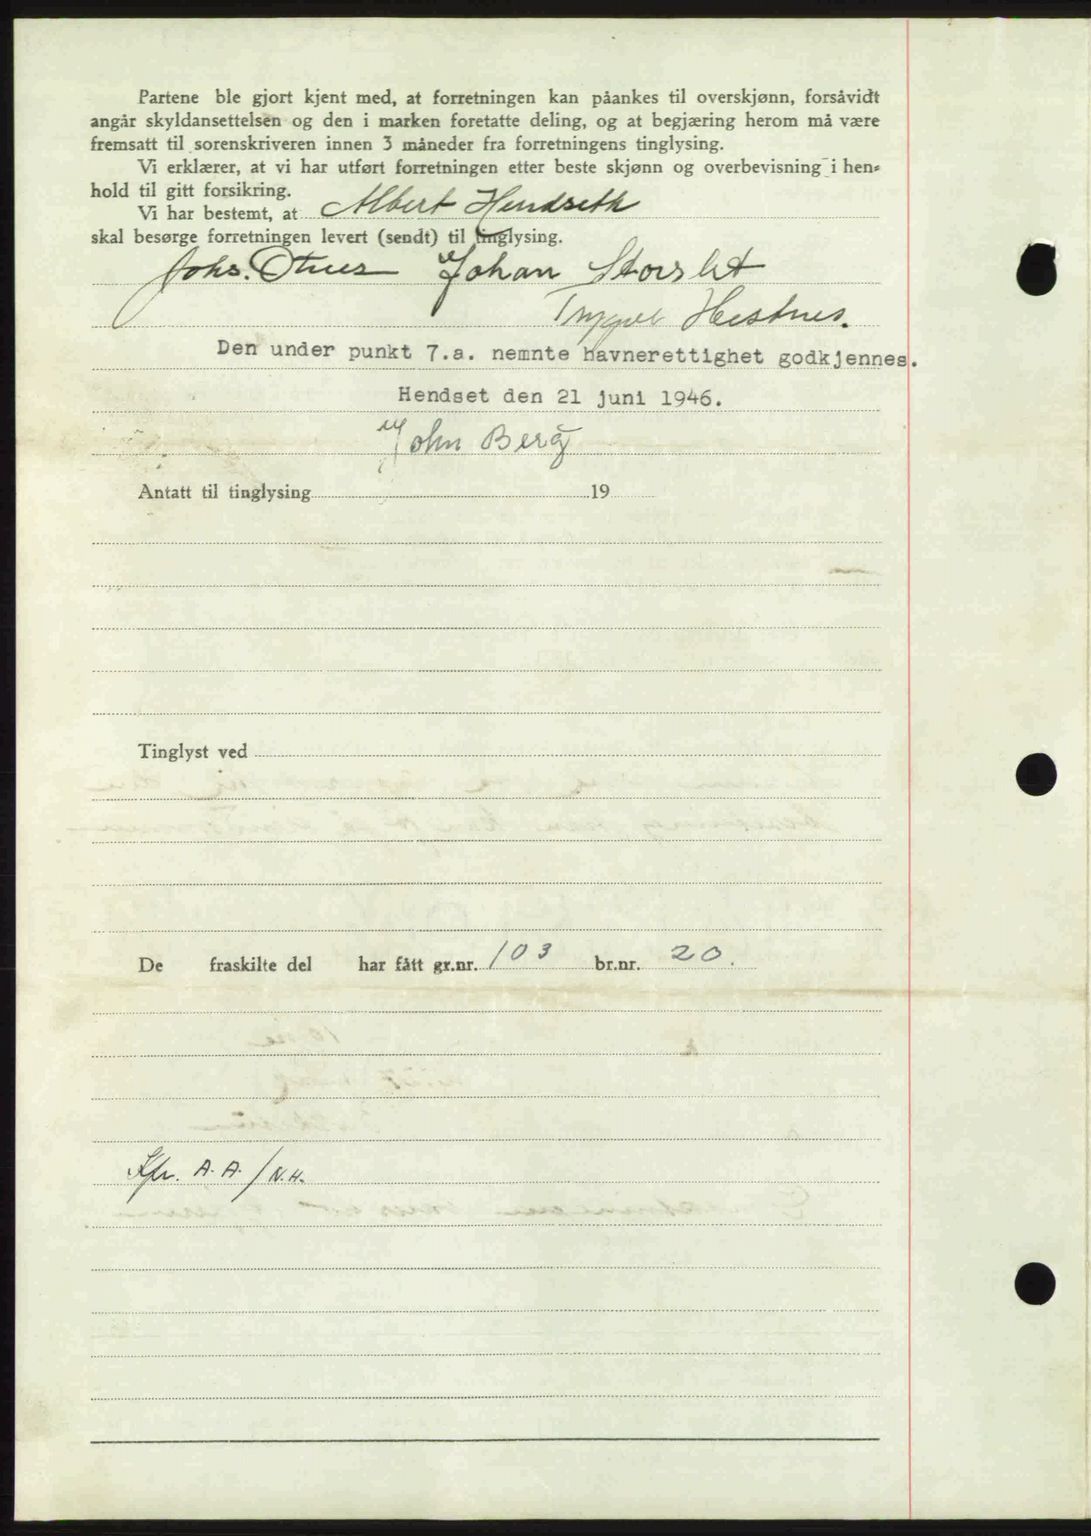 Partene ble gjort kjent med, at forretningen kan påankes til overskjønn, forsåvidt
angår skyldansettelsen og den i marken foretatte deling, og at begjæring herom må være
fremsatt til sorenskriveren innen 3 måneder fra forretningens tinglysing.
Vi erklærer, at vi har utført forretningen etter beste skjønn og overbevisning i hen-
hold til gitt forsikring.
Vi har bestemt, at Albert Hendseth
skal besørge forretningen levert (sendt) til tinglysing.
Johs. Otnes Johan Storslet
Trygve Hestnes.
Den under punkt 7.a. nemnte havnerettighet godkjennes.
Hendset den 21 juni 1946.
John Berg
Antatt til tinglysing 19
Tinglyst ved
De fraskilte del har fått gr.nr. 103 br.nr. 20.
Kfr. A.A./N.H.